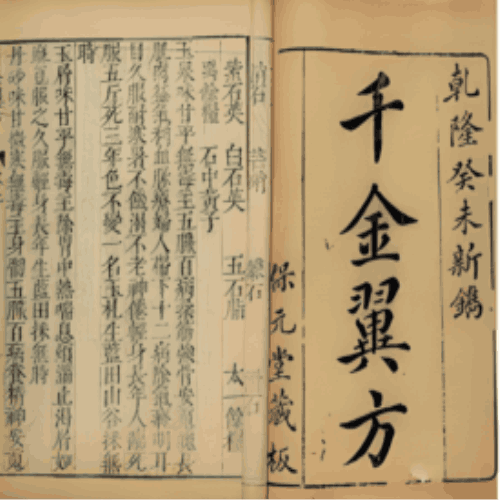 乾隆癸未新鐫
千金翼方
保元堂藏板
紫石英 白石英 五石脂 太一餘糧
禹餘糧 石中黃子
玉泉味甘平無毒主五臟百病柔筋強骨安魂魄長
肌肉益氣利血脈療婦人帶下十二病除氣癃明耳
目久服耐寒暑不飢渴不老神僊輕身長年人臨死
服五斤死三年色不變一名玉札生藍田山谷採無
時
玉屑味甘平無毒主除胃中熱喘息煩滿止渴屑如
麻豆服之久服輕身長年生藍田採無時
丹砂味甘微寒無毒主身體五臟百病養精神安魂